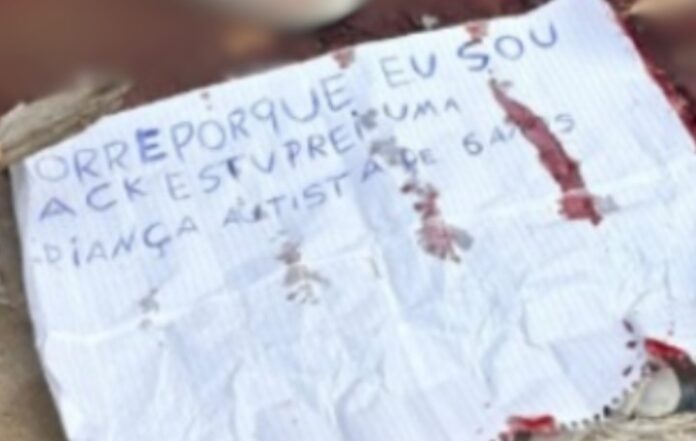 ORREPORQUE EU SOU
ACK ESTUPREI UMA
DIANÇA AUTISTA DE 6 ANOS